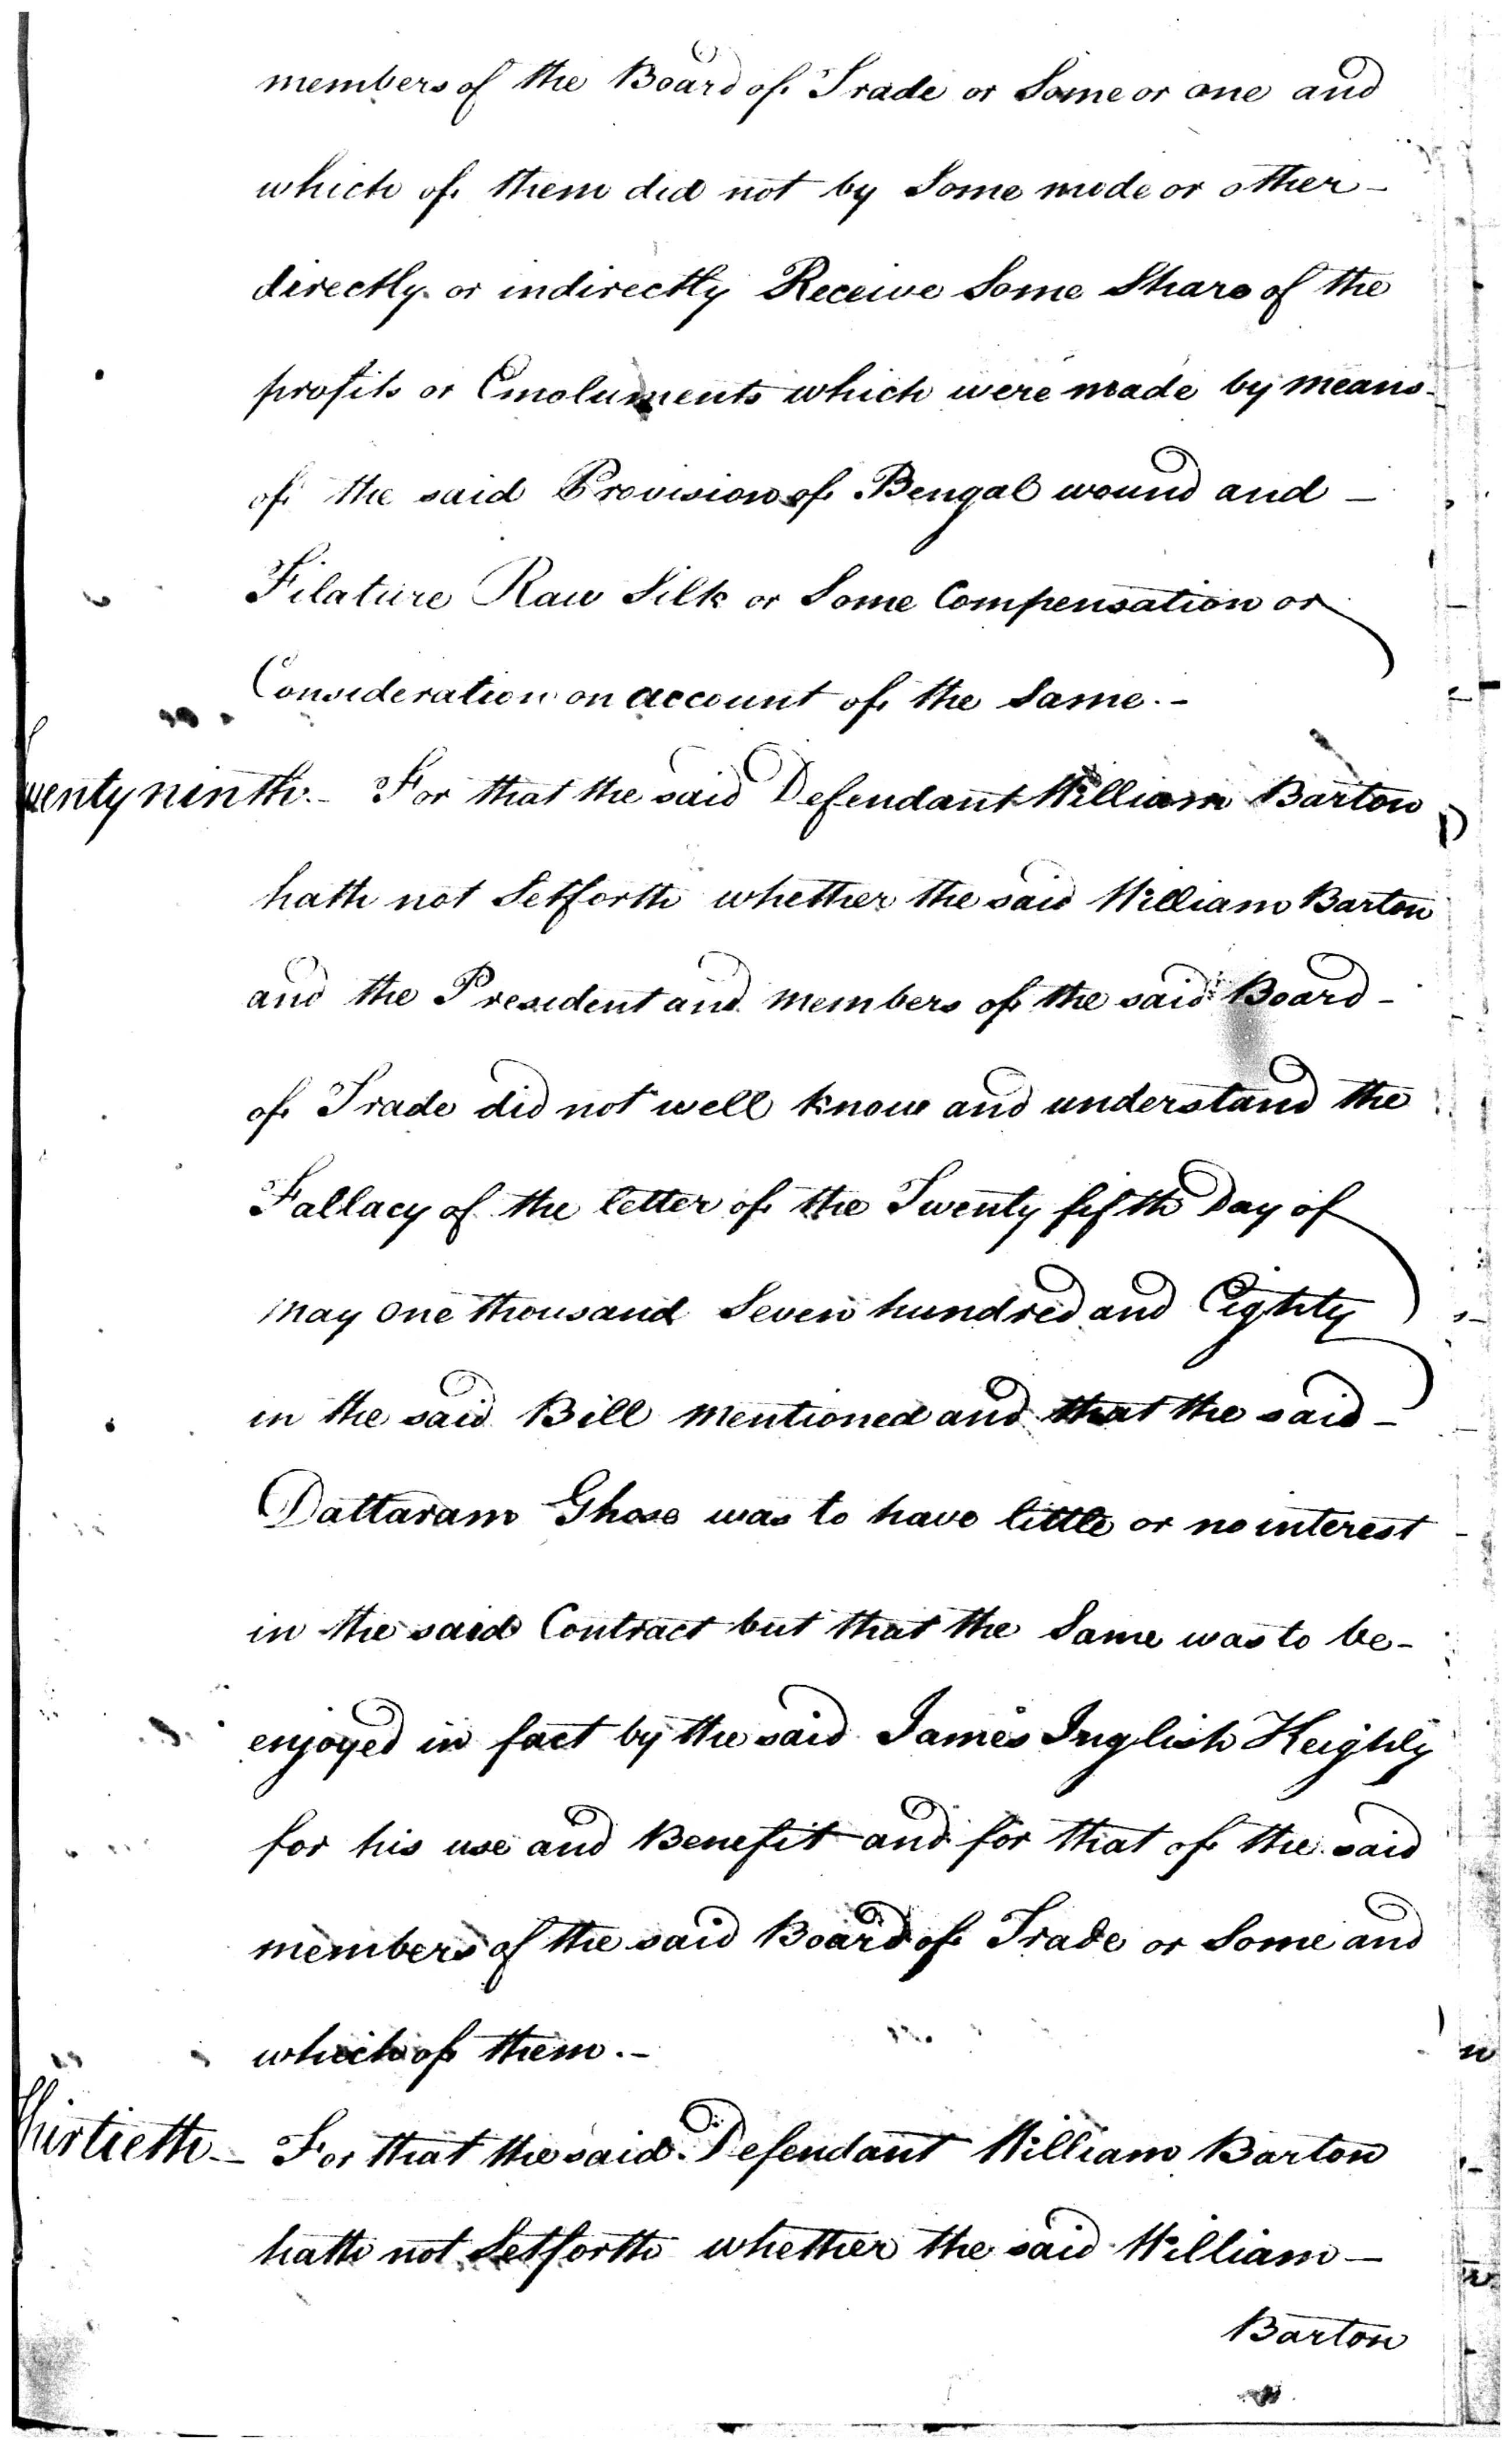 members of the Board of Trade or Some or one and
which of them did not by Some mode or other -
directly or indirectly Receive Some Share of the
profits or Emoluments which were made by means -
of the said Provision of Bengal wound and -
Filature Raw Silk or Some Compensation or
Consideration on account of the Same. -
wenty ninth. - For that the said Defendant William Barton
hath not Setforth whether the said William Barton
and the President and members of the said Board -
of Trade did not well know and understand the
Fallacy of the letter of the Twenty fifth Day of
may one thousand Seven hundred and Eighty
in the said Bill mentioned and that the said -
Dattaram Ghose was to have little or no interest
in the said Contract but that the Same was to be -
enjoyed in fact by the said James Inglish Keighly
for his use and Benefit and for that of the said
members of the said Board of Trade or Some and
which of them. -
hirtieth - For that the said Defendant William Barton
hath not Setforth whether the said William -
Barton